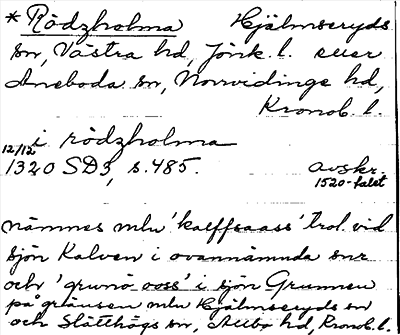 * Rödzholma Hjälmseryds
sn, Västra hd, Jönk. l. eller
Aneboda sn, Norrvidinge hd,
Kronob. l.
i rödzholma
12/12
1320 SD3, s. 485. avskr.
1520-talet
nämnes mlu 'kalffsaass' trol. vid
sjön Kalven i ovannämnda snr
och 'grunö ooss' i sjön Grunnen
på gränsen mlu Hjälmseryds sn
och Slätthögs sn, Allbo hd, Kronob. l.